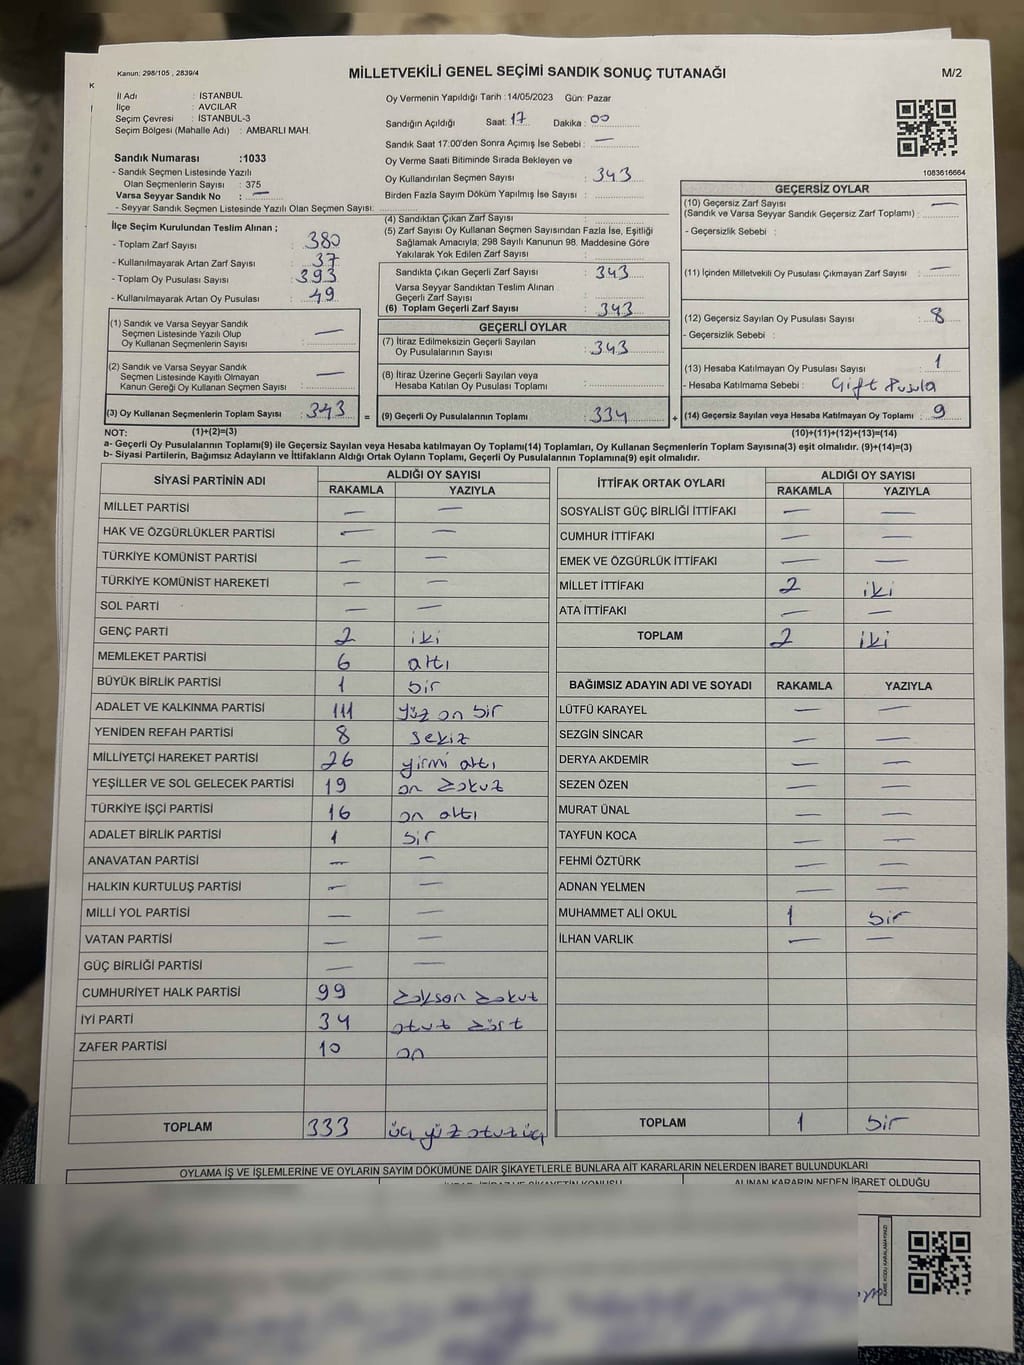 Kanun: 298/105 , 2839/4
MİLLETVEKİLİ GENEL SEÇİMİ SANDIK SONUÇ TUTANAĞI
M/2
İl Adı : İSTANBUL
İlçe : AVCILAR
Seçim Çevresi : İSTANBUL-3
Seçim Bölgesi (Mahalle Adı) : AMBARLI MAH.
Oy Vermenin Yapıldığı Tarih : 14/05/2023 Gün: Pazar
Sandığın Açıldığı Saat: 17 Dakika : 00
Sandık Saat 17:00'den Sonra Açımış İse Sebebi : —
Oy Verme Saati Bitiminde Sırada Bekleyen ve
Oy Kullandırılan Seçmen Sayısı : 343
Birden Fazla Sayım Döküm Yapılmış İse Sayısı :
1083616664
Sandık Numarası :1033
- Sandık Seçmen Listesinde Yazılı
Olan Seçmenlerin Sayısı : 375
Varsa Seyyar Sandık No : —
- Seyyar Sandık Seçmen Listesinde Yazılı Olan Seçmen Sayısı:
İlçe Seçim Kurulundan Teslim Alınan ;
- Toplam Zarf Sayısı : 380
- Kullanılmayarak Artan Zarf Sayısı : 37
- Toplam Oy Pusulası Sayısı : 393
- Kullanılmayarak Artan Oy Pusulası : 49
(1) Sandık ve Varsa Seyyar Sandık
Seçmen Listesinde Yazılı Olup
Oy Kullanan Seçmenlerin Sayısı : —
(2) Sandık ve Varsa Seyyar Sandık
Seçmen Listesinde Kayıtlı Olmayan
Kanun Gereği Oy Kullanan Seçmen Sayısı : —
(3) Oy Kullanan Seçmenlerin Toplam Sayısı : 343 =
(1)+(2)=(3)
(4) Sandıktan Çıkan Zarf Sayısı :
(5) Zarf Sayısı Oy Kullanan Seçmen Sayısından Fazla İse, Eşitliği
Sağlamak Amacıyla; 298 Sayılı Kanunun 98. Maddesine Göre
Yakılarak Yok Edilen Zarf Sayısı :
Sandıkta Çıkan Geçerli Zarf Sayısı : 343
Varsa Seyyar Sandıktan Teslim Alınan
Geçerli Zarf Sayısı :
(6) Toplam Geçerli Zarf Sayısı : 343
GEÇERLİ OYLAR
(7) İtiraz Edilmeksizin Geçerli Sayılan
Oy Pusulalarının Sayısı : 343
(8) İtiraz Üzerine Geçerli Sayılan veya
Hesaba Katılan Oy Pusulası Toplamı :
(9) Geçerli Oy Pusulalarının Toplamı : 334 +
GEÇERSİZ OYLAR
(10) Geçersiz Zarf Sayısı
(Sandık ve Varsa Seyyar Sandık Geçersiz Zarf Toplamı) : —
- Geçersizlik Sebebi :
(11) İçinden Milletvekili Oy Pusulası Çıkmayan Zarf Sayısı : —
(12) Geçersiz Sayılan Oy Pusulası Sayısı : 8
- Geçersizlik Sebebi :
(13) Hesaba Katılmayan Oy Pusulası Sayısı : 1
- Hesaba Katılmama Sebebi : Çift Pusula
(14) Geçersiz Sayılan veya Hesaba Katılmayan Oy Toplamı : 9
(10)+(11)+(12)+(13)=(14)
NOT:
a- Geçerli Oy Pusulalarının Toplamı(9) ile Geçersiz Sayılan veya Hesaba katılmayan Oy Toplamı(14) Toplamları, Oy Kullanan Seçmenlerin Toplam Sayısına(3) eşit olmalıdır. (9)+(14)=(3)
b- Siyasi Partilerin, Bağımsız Adayların ve İttifakların Aldığı Ortak Oyların Toplamı, Geçerli Oy Pusulalarının Toplamına(9) eşit olmalıdır.
SİYASİ PARTİNİN ADI ALDIĞI OY SAYISI
RAKAMLA YAZIYLA
MİLLET PARTİSİ — —
HAK VE ÖZGÜRLÜKLER PARTİSİ — —
TÜRKİYE KOMÜNİST PARTİSİ — —
TÜRKİYE KOMÜNİST HAREKETİ — —
SOL PARTİ — —
GENÇ PARTİ 2 iki
MEMLEKET PARTİSİ 6 altı
BÜYÜK BİRLİK PARTİSİ 1 bir
ADALET VE KALKINMA PARTİSİ 111 yüz on bir
YENİDEN REFAH PARTİSİ 8 sekiz
MİLLİYETÇİ HAREKET PARTİSİ 26 yirmi altı
YEŞİLLER VE SOL GELECEK PARTİSİ 19 on dokuz
TÜRKİYE İŞÇİ PARTİSİ 16 on altı
ADALET BİRLİK PARTİSİ 1 bir
ANAVATAN PARTİSİ — —
HALKIN KURTULUŞ PARTİSİ — —
MİLLİ YOL PARTİSİ — —
VATAN PARTİSİ — —
GÜÇ BİRLİĞİ PARTİSİ — —
CUMHURİYET HALK PARTİSİ 99 doksan dokuz
İYİ PARTİ 34 otuz dört
ZAFER PARTİSİ 10 on
TOPLAM 333 üç yüz otuz üç
İTTİFAK ORTAK OYLARI ALDIĞI OY SAYISI
RAKAMLA YAZIYLA
SOSYALİST GÜÇ BİRLİĞİ İTTİFAKI — —
CUMHUR İTTİFAKI — —
EMEK VE ÖZGÜRLÜK İTTİFAKI — —
MİLLET İTTİFAKI 2 iki
ATA İTTİFAKI — —
TOPLAM 2 iki
BAĞIMSIZ ADAYIN ADI VE SOYADI RAKAMLA YAZIYLA
LÜTFÜ KARAYEL — —
SEZGİN SİNCAR — —
DERYA AKDEMİR — —
SEZEN ÖZEN — —
MURAT ÜNAL — —
TAYFUN KOCA — —
FEHMİ ÖZTÜRK — —
ADNAN YELMEN — —
MUHAMMET ALİ OKUL 1 bir
İLHAN VARLIK — —
TOPLAM 1 bir
OYLAMA İŞ VE İŞLEMLERİNE VE OYLARIN SAYIM DÖKÜMÜNE DAİR ŞİKAYETLERLE BUNLARA AİT KARARLARIN NELERDEN İBARET BULUNDUKLARI
ALINAN KARARIN NEDEN İBARET OLDUĞU